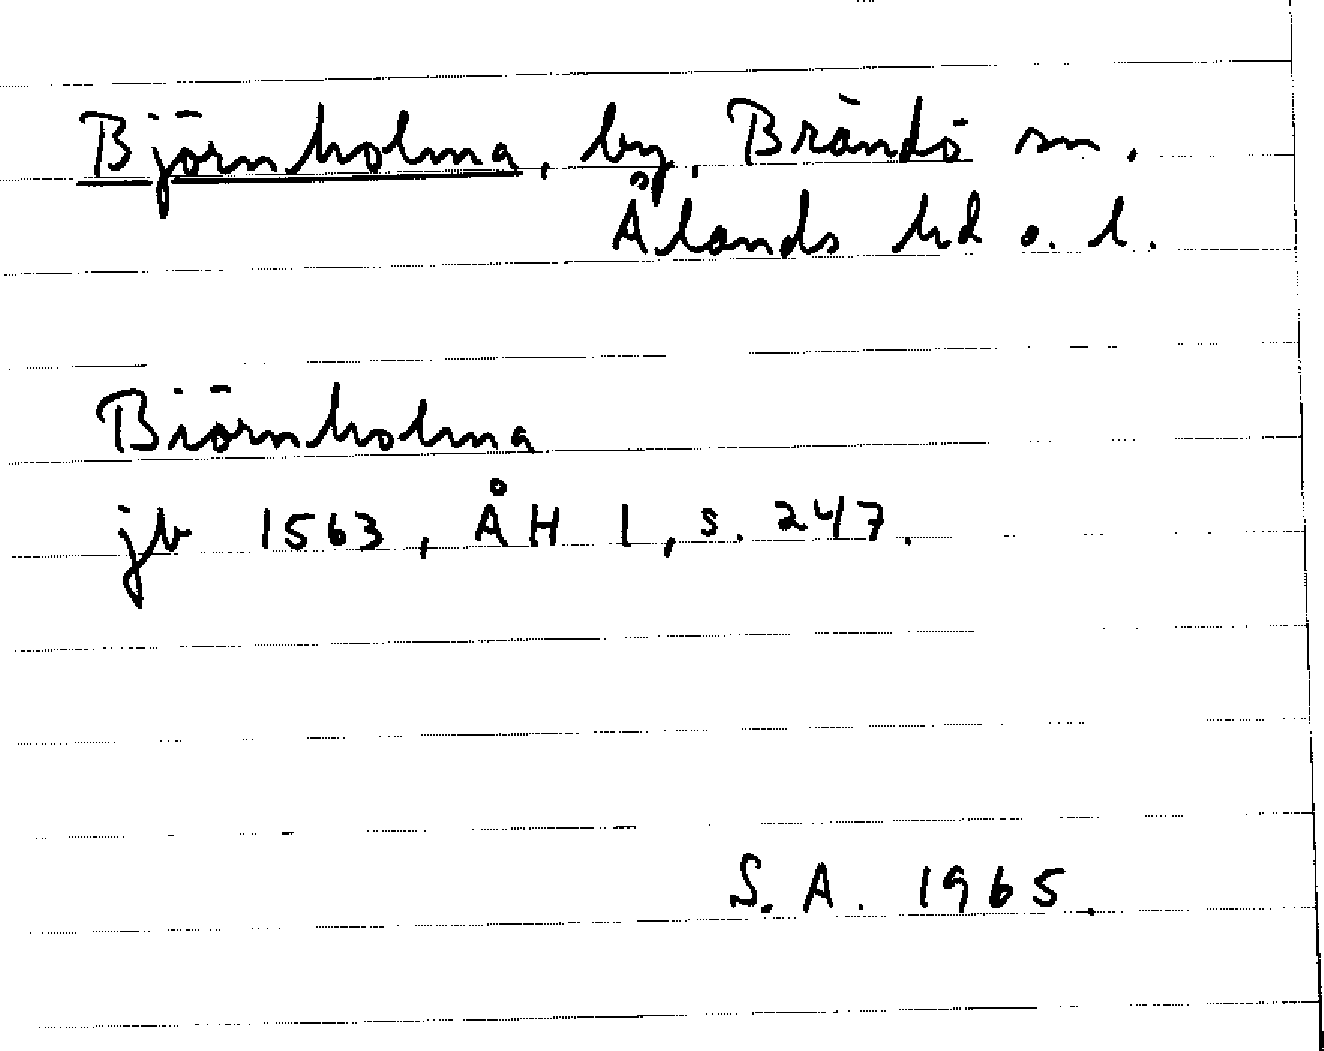 Björnholma, by, Brändö sn.
Ålands hd o. l.
Biörnholma
jb 1563, ÅH I, s. 247.
S. A. 1965.